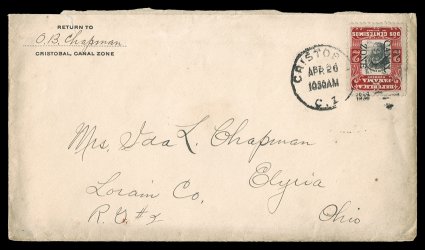 RETURN TO
O. B. Chapman
CRISTOBAL, CANAL ZONE
CRISTOB
APR 26
1030AM
C. Z
DOS CENTESIMOS
2 2
PANAMA
Mrs. Ida L. Chapman
Elyria
Lorain Co.
Ohio
R. D. #2